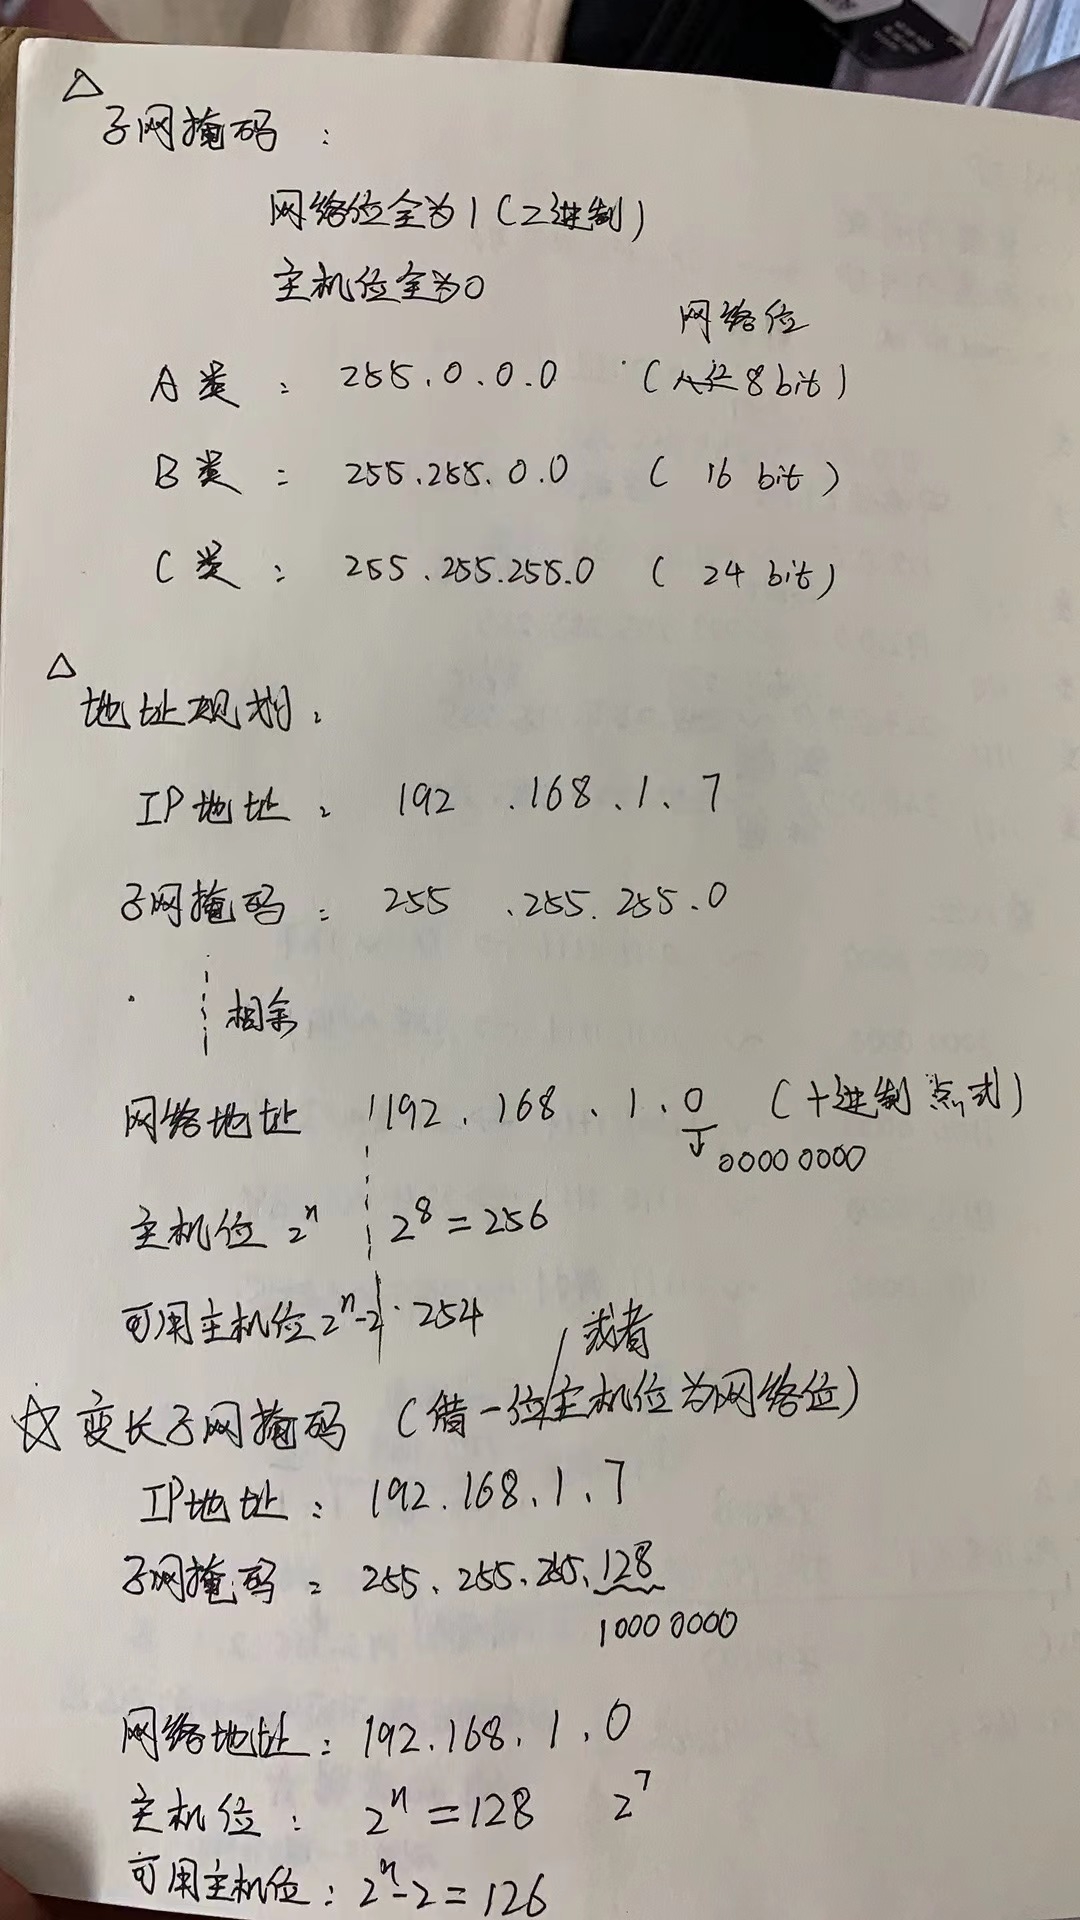 △
子网掩码：
网络位全为1（2进制）
主机位全为0
网络位
A类： 255.0.0.0 （8bit）
B类： 255.255.0.0 （16 bit）
C类： 255.255.255.0 （24 bit）
△
地址规划：
IP地址： 192.168.1.7
子网掩码： 255.255.255.0
相余
网络地址 192.168.1.0 （十进制点式）
00000000
主机位 2ⁿ 2⁸=256
可用主机位 2ⁿ-2 254
或者
☆变长子网掩码（借一位主机位为网络位）
IP地址： 192.168.1.7
子网掩码： 255.255.255.128
10000000
网络地址： 192.168.1.0
主机位： 2ⁿ=128 2⁷
可用主机位： 2ⁿ-2=126